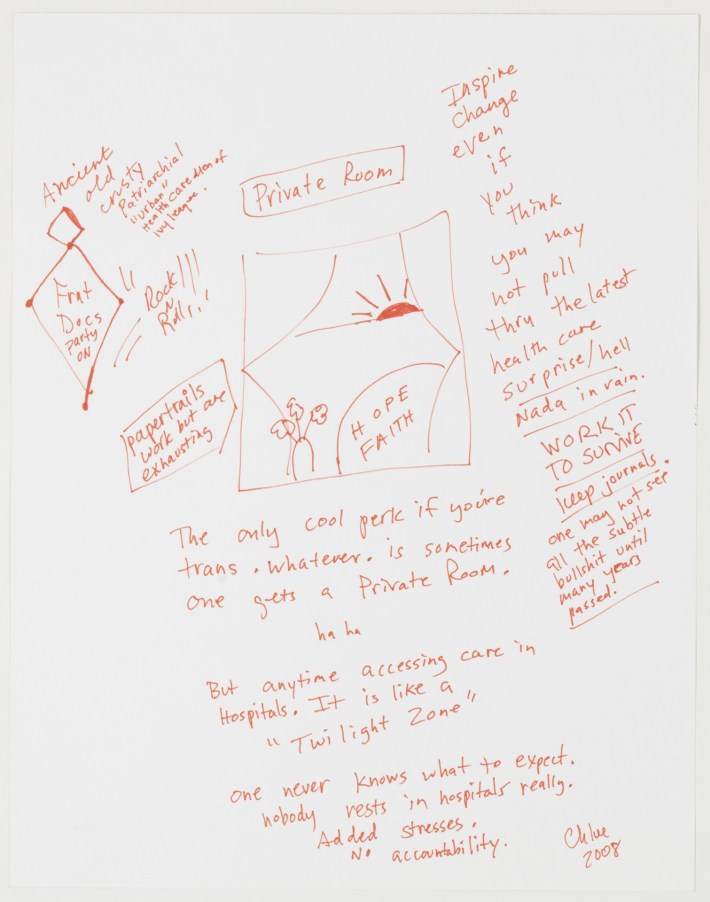 Ancient
old
crusty
Patriarchial
"urban"
Healthcare Men of
Ivy league.
Frat
Docs
party
ON
Rock!!!
N
Roll!!!
papertrails
work but are
exhausting
Private Room
HOPE
FAITH
Inspire
Change
even
if
you
think
you may
not pull
thru the latest
health care
surprise/hell
Nada in vain.
WORK IT
TO SURVIVE
Keep journals.
one may not see
all the subtle
bullshit until
many years
passed.
The only cool perk if you're
trans. whatever. is sometimes
one gets a Private Room.
ha ha
But anytime accessing care in
Hospitals. It is like a
"Twilight Zone"
One never knows what to expect.
nobody rests in hospitals really.
Added stresses.
No accountability.
Chloe
2008